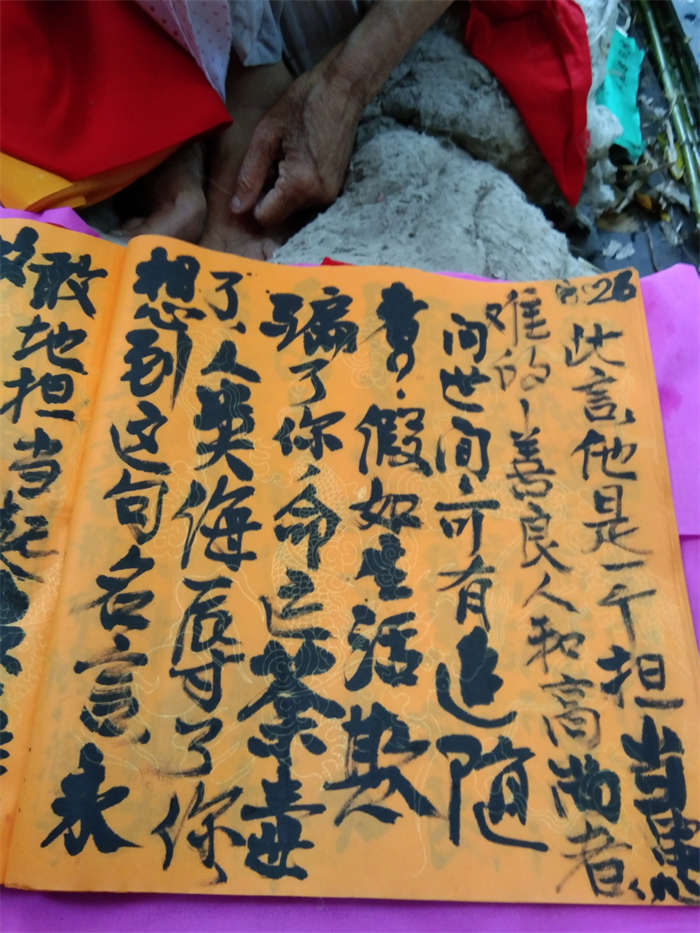 26
此言,他是一个担当患
难的、善良人和高尚者
问世间、可有追随
者,假如生活欺
骗了你,命运荼毒
了、人类侮辱了你
想到这句名言永
敢地担当起